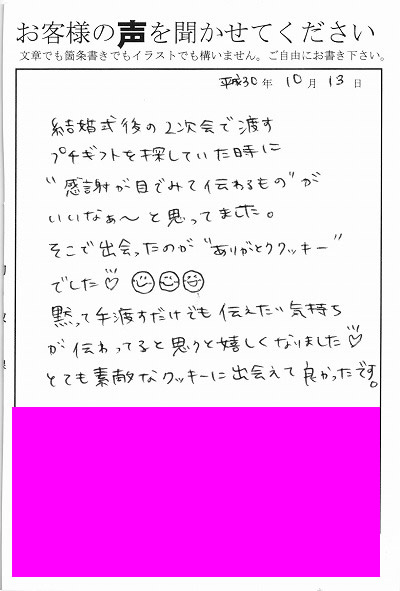 お客様の声を聞かせてください
文章でも箇条書きでもイラストでも構いません。ご自由にお書き下さい。
平成30年 10月 13日
結婚式後の2次会で渡す
プチギフトを探していた時に
"感謝が目でみて伝わるもの"が
いいなぁ〜と思ってました。
そこで出会ったのが"ありがとうクッキー"
でした♡
黙って手渡すだけでも伝えたい気持ち
が伝わってると思うと嬉しくなりました♡
とても素敵なクッキーに出会えて良かったです。